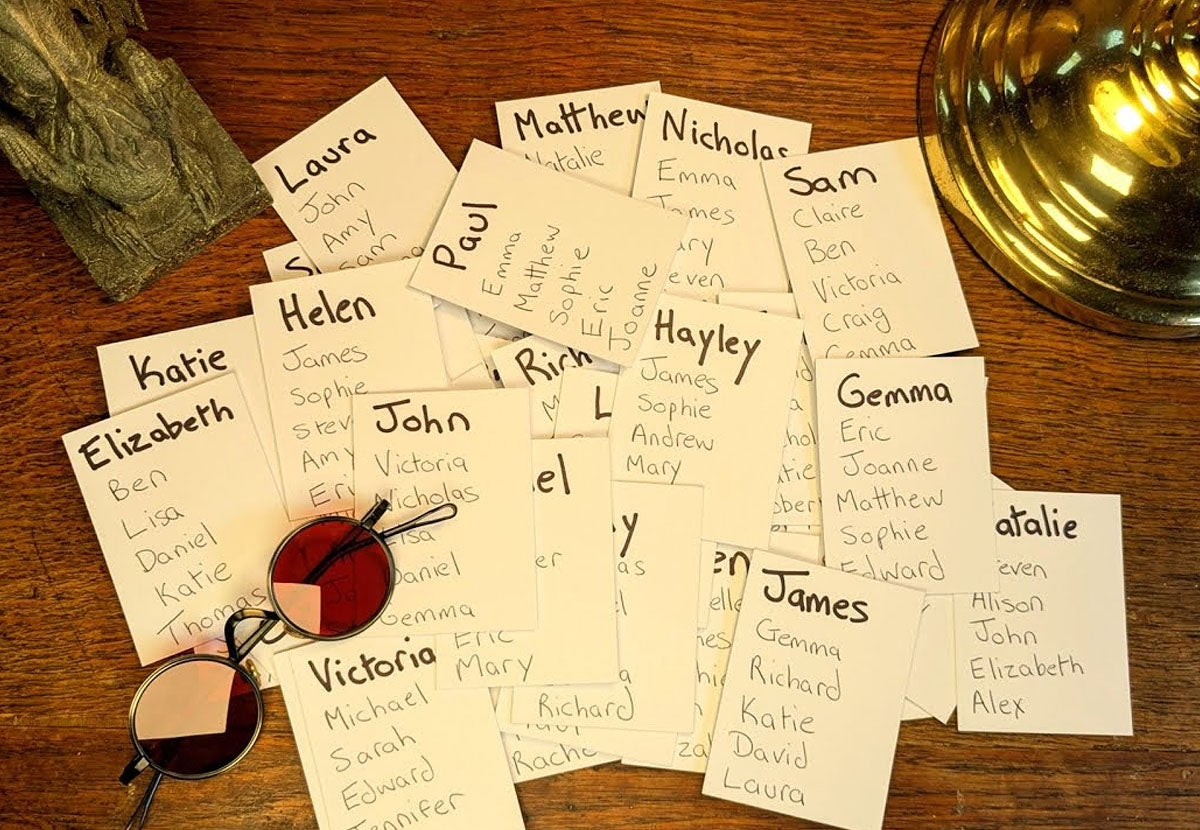 Laura
John
Amy
Sam
Matthew
Natalie
Nicholas
Emma
James
Sam
Claire
Ben
Victoria
Craig
Gemma
Paul
Emma
Matthew
Sophie
Eric
Joanne
Helen
James
Sophie
Amy
Katie
Elizabeth
Ben
Lisa
Daniel
Katie
Thomas
John
Victoria
Nicholas
Lisa
Daniel
Gemma
Rich
Hayley
James
Sophie
Andrew
Mary
Gemma
Eric
Joanne
Matthew
Sophie
Edward
atalie
even
Alison
John
Elizabeth
Alex
el
er
Eric
Mary
y
as
Richard
James
Gemma
Richard
Katie
David
Laura
Victoria
Michael
Sarah
Edward
Jennifer
Rache
za